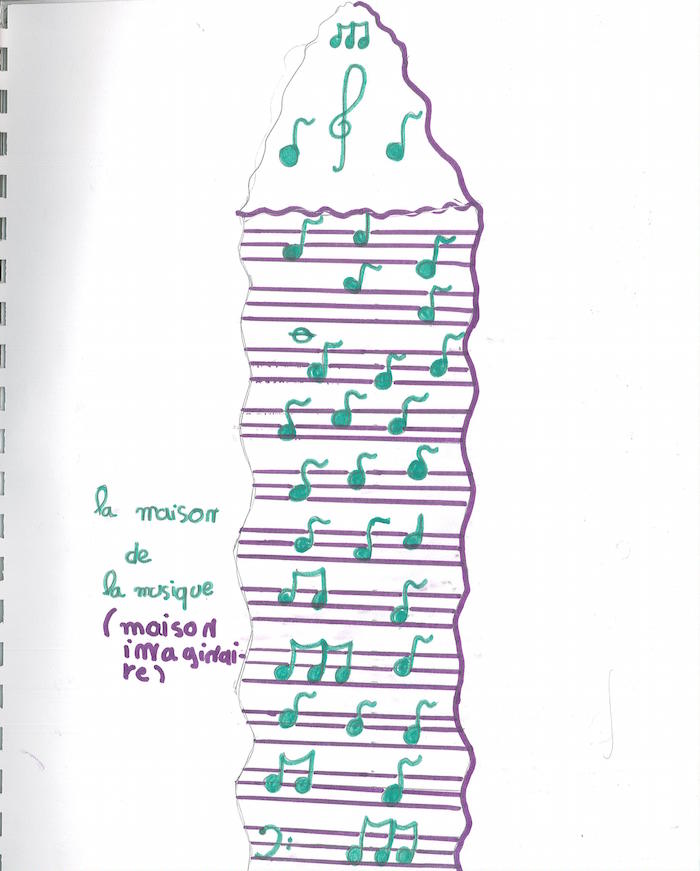 la maison
de
la musique
(maison
imaginai-
re)